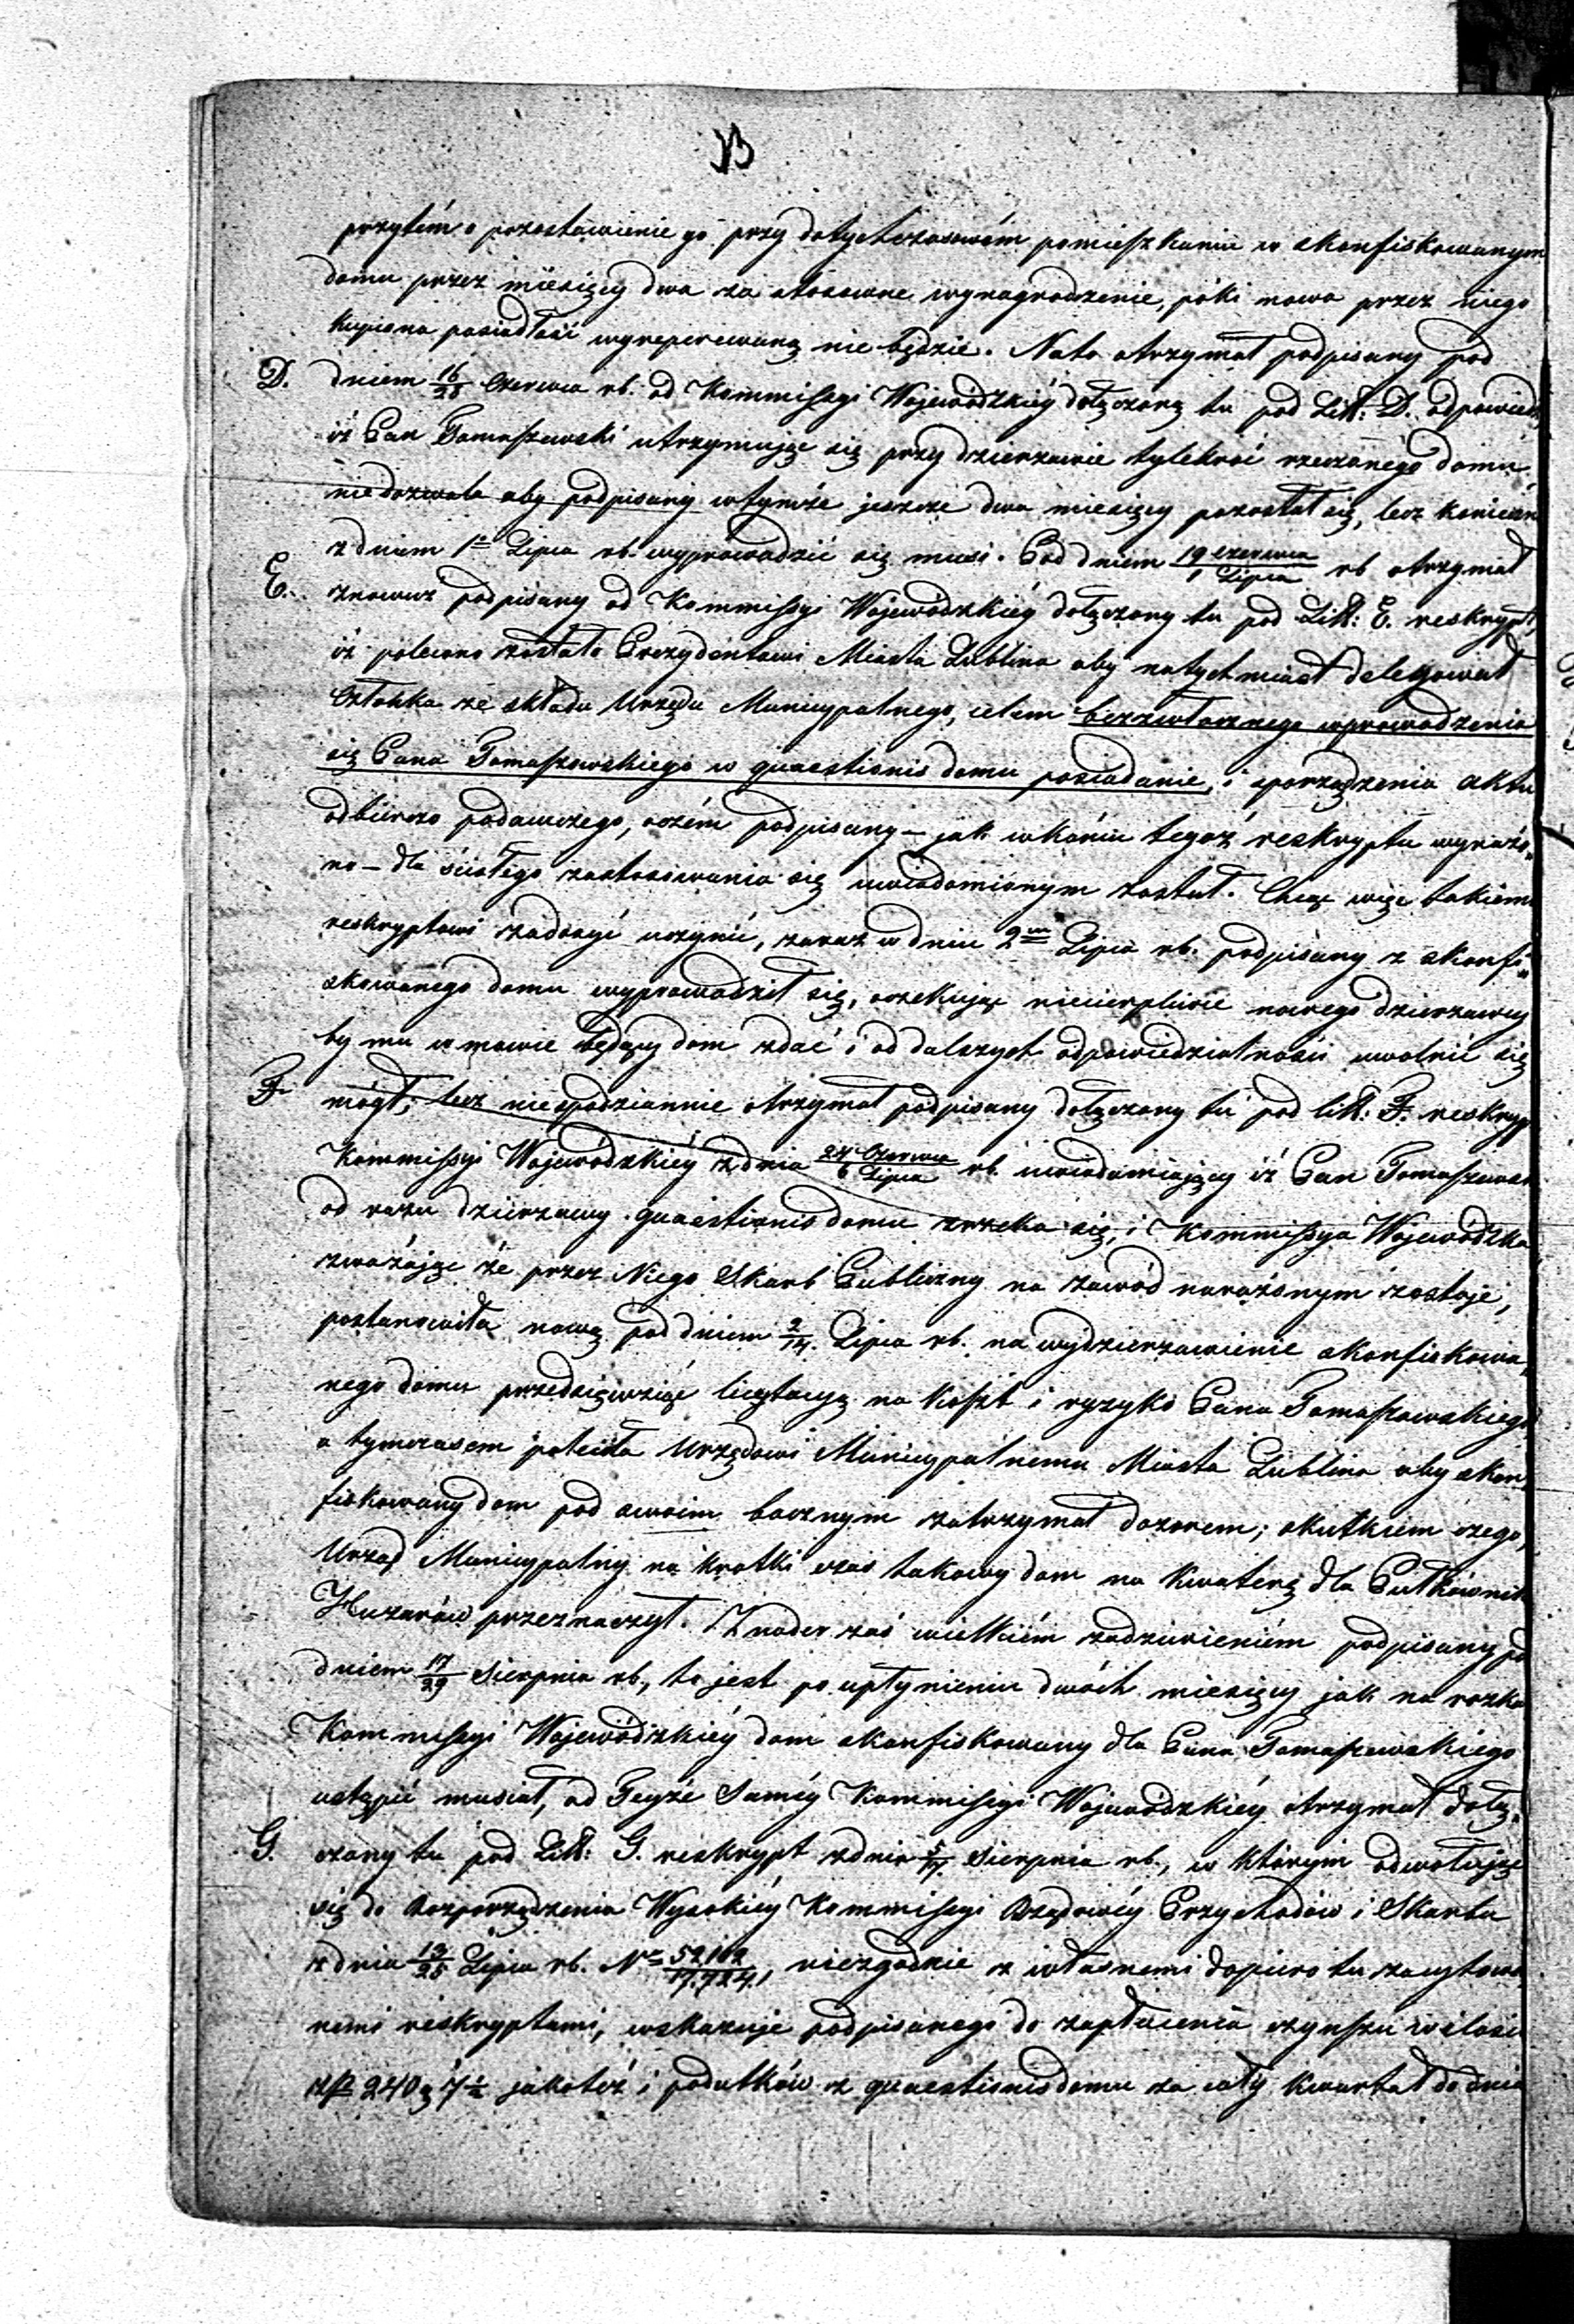 13
przytém o pozostawienie go przy dotychczasowém pomieszkaniu w skonfiskowanym
domu przez miesięcy dwa za stósowne wynagrodzenie, póki nowo przez niego
kupiona posiadłość wyreperowaną nie będzie. Nato otrzymał podpisany pod
D. dniem 16/28 Czerwca rb. od Kommissyi Wojewódzkiéy dołączoną tu pod Litt: D. odpowiedź
iż Pan Tomaszewski utrzymując się przy dzierzawie tylekroć rzeczonego domu
niedozwala aby podpisany wtymże jeszcze dwa miesięcy pozostał się, lecz koniecznie
z dniem 1º Lipca rb. wyprowadzić się musi. Pod dniem 19 Czerwca/1 Lipca rb otrzymał
E. znowuż podpisany od Kommissyi Wojewódzkiéy dołączony tu pod Litt: E. reskrypt,
iż polecono zostało Prezydentowi Miasta Lublina aby natychmiast delegował
Członka ze składu Urzędu Municypalnego, celem bezzwłocznego wprowadzenia
się Pana Tomaszewskiego w quaestionis domu posiadanie, i sporządzenia aktu
odbiorczo podawczego, oczém podpisany – jak wkońcu tegoż reskryptu wyrażo„
no – dla ścisłego zastosowania się uwiadomionym został. Chcąc więc takiemu
reskryptowi zadosyć uczynić, zaraz w dniu 2m Lipca rb. podpisany z skonfi„
skowanego domu wyprowadził się, oczekując niecierpliwie nowego dzierzawcy
by mu w mowie będący dom zdać i od dalszych odpowiedzialności uwolnić się
F. mógł; lecz niespodziannie otrzymał podpisany dołączony tu pod litt: F. reskryp
Kommissyi Wojewódzkiéy z dnia 24 Czerwca/6 Lipca rb. uwiadamiający iż Pan Tomaszewski
od razu dzierzawy quaestionis domu zrzeka się, i Kommissya Wojewódzka
zważając że przez Niego Skarb Publiczny na zawód narażonym zostaje,
postanowiła nową pod dniem 2/14. Lipca rb. na wydzierzawienie skonfiskowa„
nego domu przedsięwziąć licytacyą na koszt i ryzyko Pana Tomaszewskiego
a tymczasem poleciła Urzędowi Municypalnemu Miasta Lublina aby skon„
fiskowany dom pod swoim bacznym zatrzymał dozorem; skutkiem czego,
Urząd Municypalny na krotki czas takowy dom na Kwaterę dla Pułkownika
Huzarów przeznaczył. Z nader zaś wielkiém zadziwieniém podpisany pod
dniem 17/29 Sierpnia rb., to jest po upłynieniu dwóch miesięcy jak na rozkaz
Kommissyi Wojewódzkiéy dom skonfiskowany dla Pana Tomaszewskiégo
ustąpić musiał, od Teyże Saméy Kommissyi Wojewódzkiéy otrzymał dołą„
G. czony tu pod Litt: G. reskrypt z dnia 5/17 Sierpnia rb., w którym odwołując
się do Rozporządzenia Wysokiéy Kommissyi Rządowéy Przychodów i Skarbu
z dnia 13/25 Lipca rb. Nr 52102/17,724, niezgodnie z własnemi dopiero tu zacytowa
nemi reskryptami, wskazuje podpisanego do zapłacenia czynszu w ilości
złp 240 g 7½ jakoteż i podatków z quaestionis domu za cały kwartał do dnia